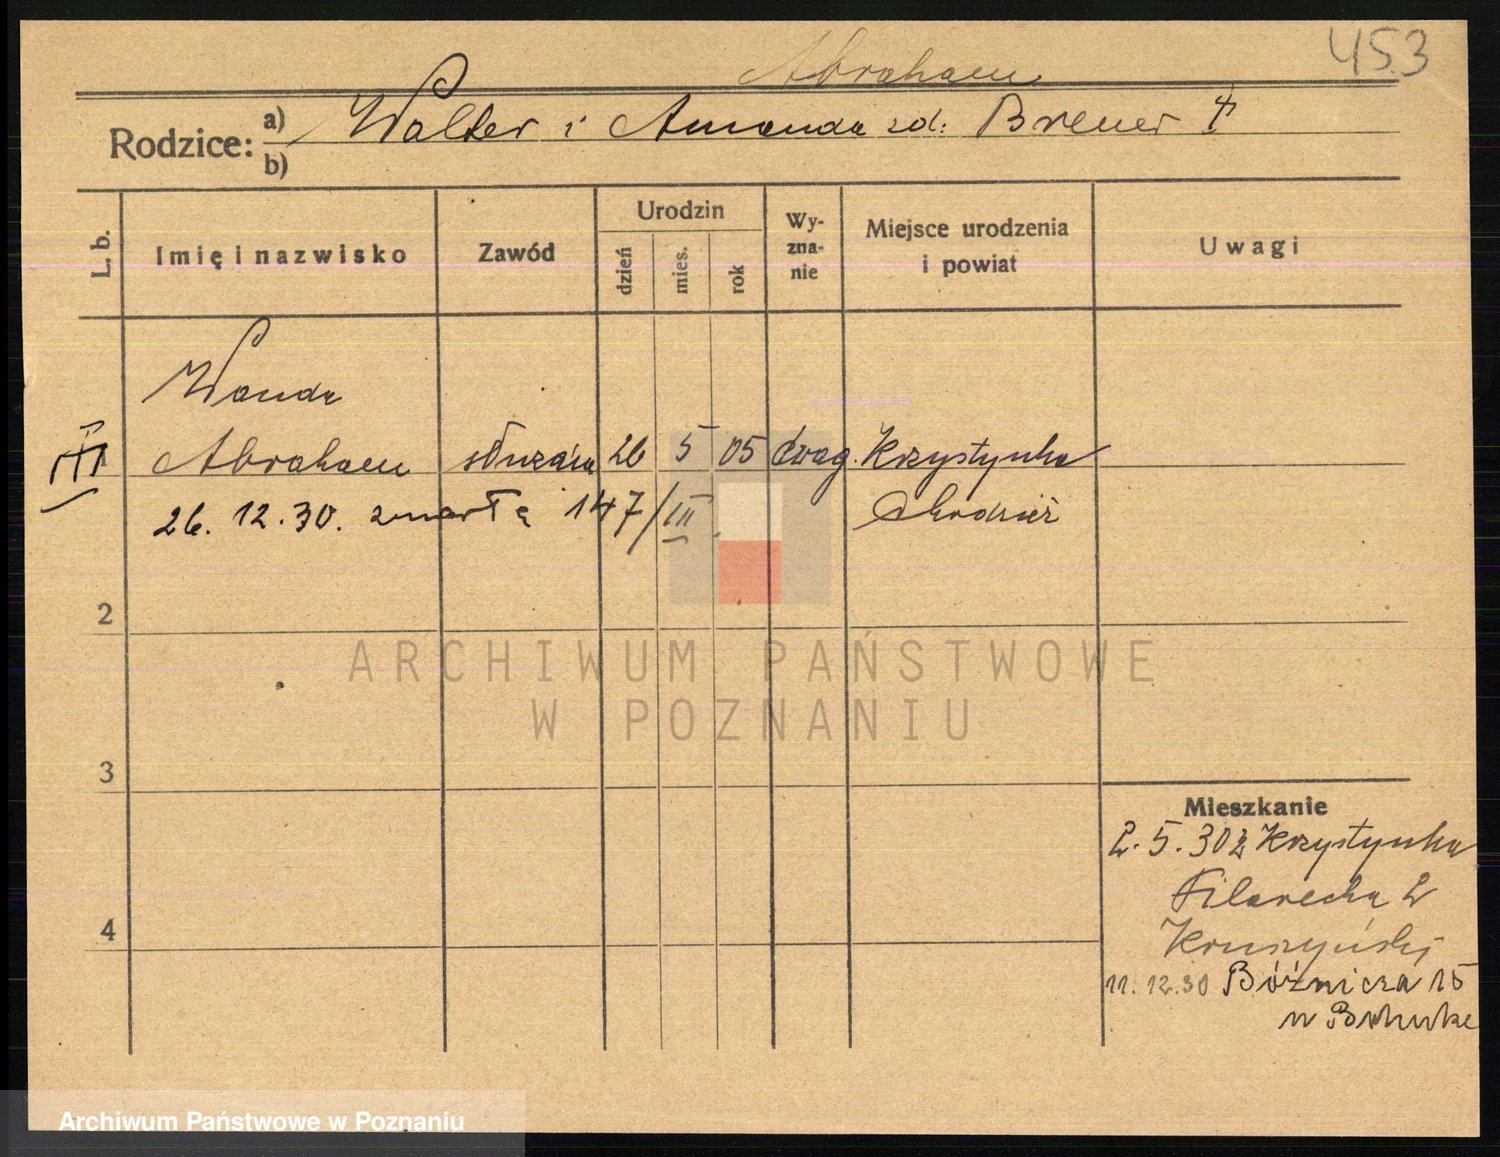 453
Abraham
Rodzice: a) Walter i Amanda zd: Brener †
b)
L. b. Imię i nazwisko Zawód Urodzin dzień mies. rok Wy-zna-nie Miejsce urodzenia i powiat Uwagi
Wanda
III 1 Abraham służąca 26 5 05 ewag. Krzystynka
26. 12. 30. zmarła 147/III. Chodzież
2
ARCHIWUM PAŃSTWOWE
W POZNANIU
3
Mieszkanie
2. 5. 30 z Krzystynka
Filarecka 2
4
Kruszyński
11. 12. 30 Bóżnicza 15
Archiwum Państwowe w Poznaniu